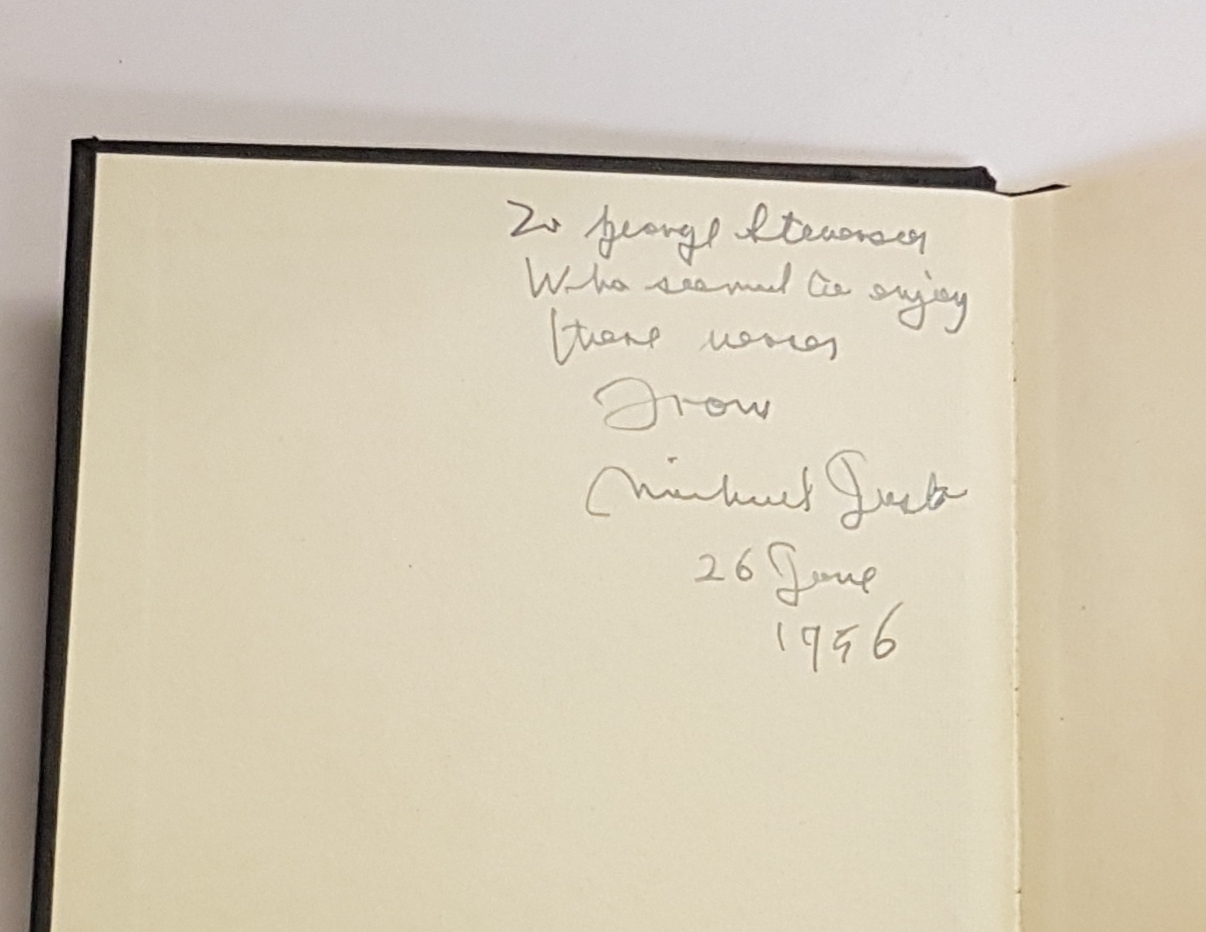 To George Stevenson
Who seemed to enjoy
these verses
From
Michael
26 June
1956